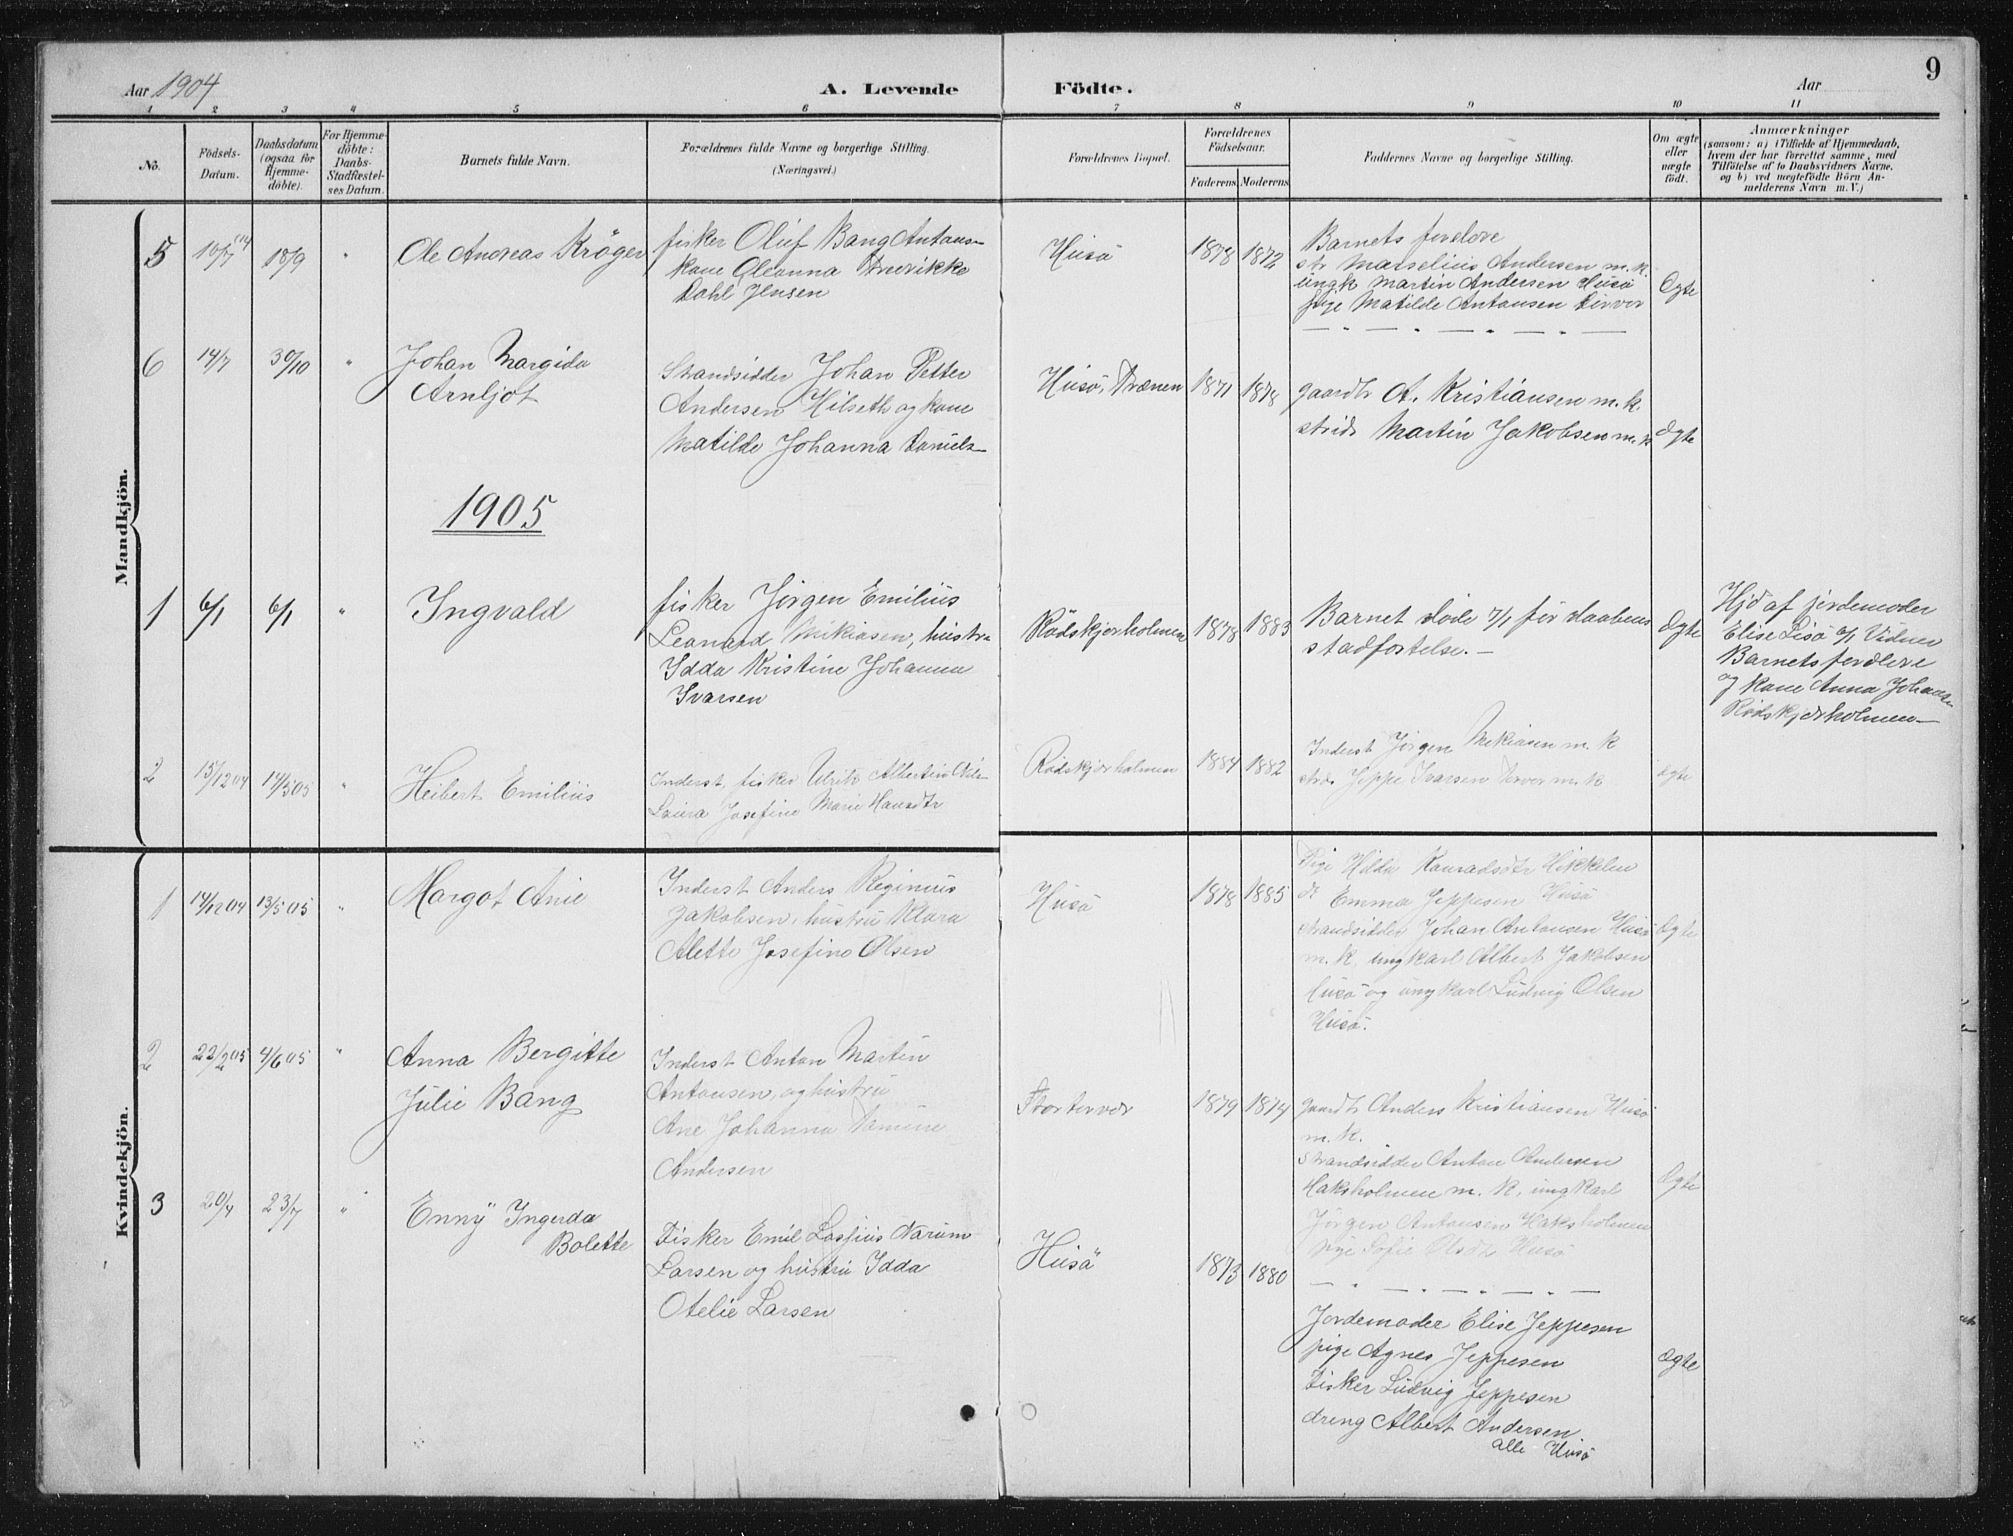 Aar 1904
A. Levende Födte.
Aar
9
1 2 3 4 5 6 7 8 9 10 11
No.
Födsels-Datum.
Daabsdatum (ogsaa for Hjemmedöbte).
For Hjemmedöbte: Daabs-Stadfæstelses Datum.
Barnets fulde Navn.
Forældrenes fulde Navne og borgerlige Stilling. (Næringsvei.)
Forældrenes Bopæl.
Forældrenes Födselsaar.
Faderens. Moderens.
Faddernes Navne og borgerlige Stilling.
Om ægte eller uægte födt.
Anmærkninger
(saasom: a) i Tilfælde af Hjemmedaab, hvem der har forrettet samme, med Tilföielse af to Daabsvidners Navne, og b) ved uegtefödte Börn Anmelderens Navn m. V.)
Mandkjön.
5 10/7 04 18/9 " Ole Andreas Kröger
fisker Oluf Bang Antons-
kone Oleanna
Dahl Jensen
Husö
1878 1872
Barnets forelore
str Marselius Andersen m.k.
ungk Martin Andersen Husö
pige Matilde Antonsen
Ægte
6 14/7 30/10 " Johan Margido
Arnljot
Strandsidder Johan Petter
Andersen Hilseth og kone
Matilde Johanna Daniels-
Husö, Trænen
1871 1878
gaardbr A. Kristiansen m.k.
strids Martin Jakobsen m.k
Ægte
1905
1 6/1 6/1 " Ingvald
fisker Jörgen Emilius
Leonard Mikiasen, hustru
Idda Kristine Johanna
Ivarsen
Rödskjærholmen
1878 1883
Barnet döde 7/1 för daabens
stadfæstelse. -
Ægte
Hjd af jordemoder
Elise Lisö 6/1 Vidner
Barnets forældre
og kone Anna Johans-
Rödskjærholmen
2 15/12 04 14/5 05 " Heibert Emilius
Inderst, fisker Ulrik Albertin
Laura Josefine Marie Hansdtr
Rödskjærholmen
1884 1882
Inderst Jörgen Mikiasen m. k
strds Jeppe Ivarsen m. k
Ægte
Kvindekjön.
1 14/12 04 13/5 05 " Margot Anie
Inderst Anders Reginius
Jakobsen, hustru Klara
Alette Josefine Olsen
Husö
1878 1885
Pige Hilda Konradsdtr
d. Emma Jeppesen Husö
strandsidder Johan Antonsen Husö
m. k. ungkarl Albert Jakobsen
Husö og ungkarl Ludvig Olsen
Husö.
Ægte
2 22/2 05 4/6 05 " Anna Bergitte
Julie Bang
Inderst Anton Martin
Antonsen, og hustru
Ane Johanna
Andersen
1879 1874
gaardbr Anders Kristiansen Husö
m. k.
strandsidder Anton Andersen
Haksholmen m. k, ungkarl
Jörgen Antonsen Haksholmen
pige Sofie Olsdtr Husö
Ægte
3 20/4 23/7 " Enny Ingerda
Bolette
Fisker Emil Narum
Larsen og hustru Idda
Otelie Larsen
Husö
1873 1880
Jordemoder Elise Jeppesen
pige Agnes Jeppesen
Fisker Ludvig Jeppesen
dreng Albert Andersen
alle Husö
ægte